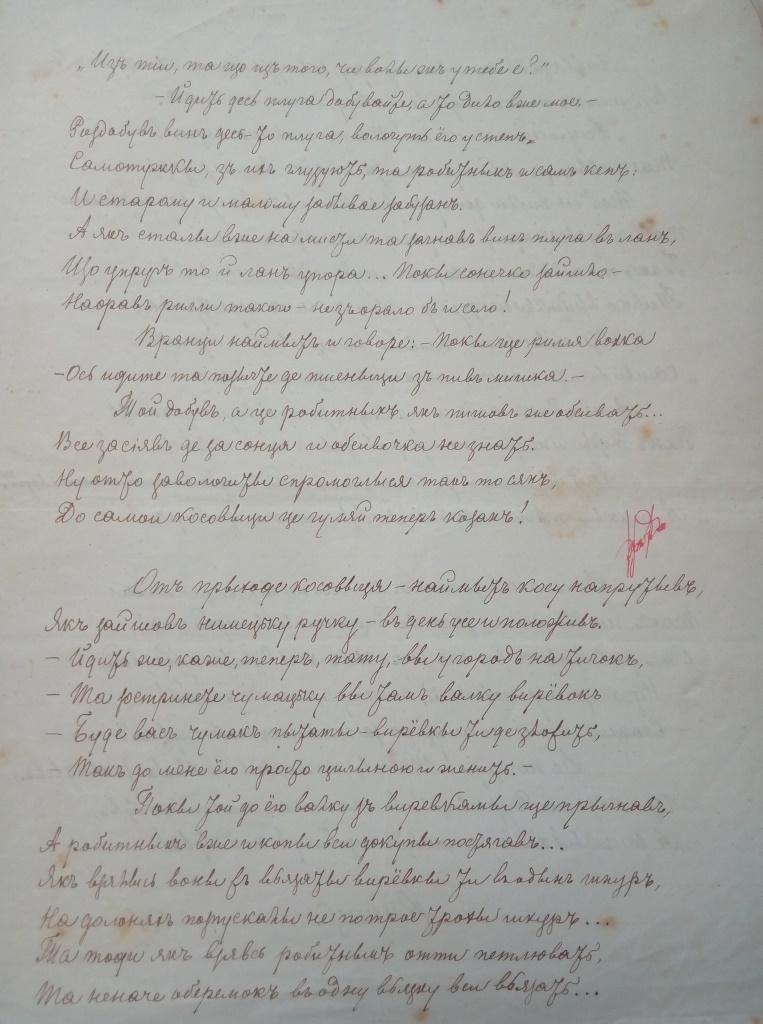 „Изъ тіи, та що изъ того, чи волы жъ у тебе е?"
— Йдить десь плуга добувайте, а то дило вже мое. —
Роздобувъ винъ десь-то плуга, волочуть ёго у степъ,
Самотужкы, зъ ихъ глузують, та робитныкъ и самъ кепъ:
И старому и малому забывае забузанъ.
А якъ сталы вже на мисти та загнавъ винъ плуга въ ланъ,
Що упругъ то й ланъ упора... Покы сонечко зайшло —
Наоравъ рилли такого — не зъорало бъ и село!
Вранци наймытъ и говоре: — Покы ще рилля волка
— Ось идите та позычте де пшеныци зъ пивъ мишка. —
Той добувъ, а це робитныкъ якъ пишовъ же обсивать...
Все засіявъ де за сонця и обсивочка не знать.
Ну отто заволочиты спромоглыся такъ то сякъ,
До самои косовыци це гуляй теперъ козакъ!
Отъ прыходе косовыця — наймытъ косу напрутывъ,
Якъ зайшовъ нимецьку ручку — въ день усе и положивъ.
— Йдить же, каже, теперъ, тату, вы у городъ на тичокъ,
— Та зостринете чумацьку вы тамъ валку вирёвокъ
— Буде васъ чумакъ пытаты — вирёвкы ти де збувать,
— Такъ до мене ёго прото цилыною и женить. —
Покы той до ёго валку зъ виревкамы ще прыгнавъ,
А робитныкъ вже и копы вси докупы постягавъ...
Якъ врялысь воны въ вьязаты вирёвкы ти въ одынъ шнуръ,
На долоняхъ попускалы не по трое трохы шкуръ...
Та тоди якъ врявсь робитныкъ отти петлюватъ,
Та неначе оберемокъ въ одну вьязку вси вьязать...